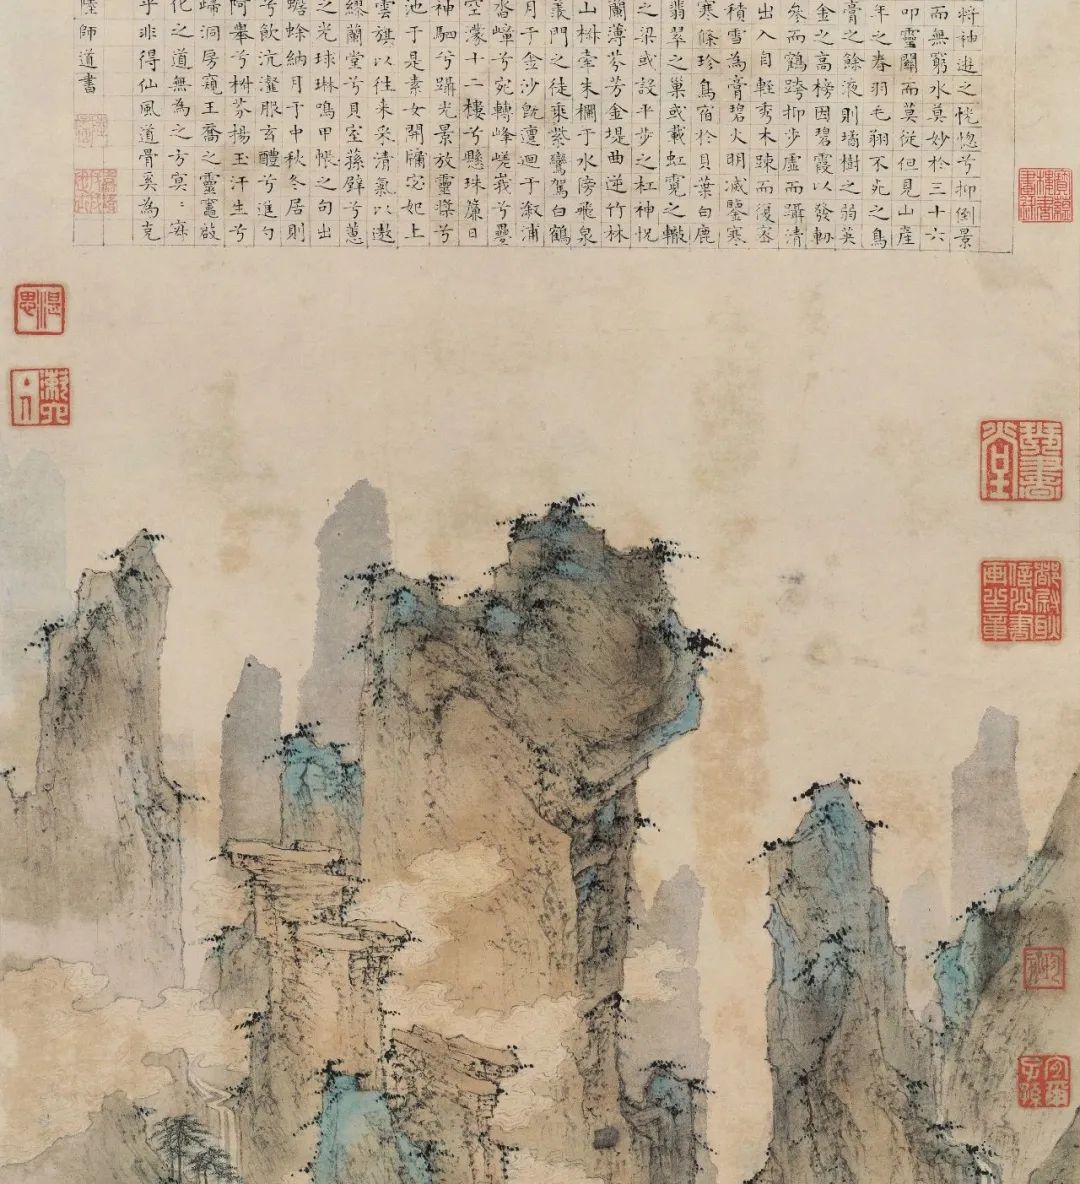 將神遊之恍惚兮抑倒景
而無窮水莫妙於三十六
叩靈關而莫從但見山產
年之春羽毛翔不死之鳥
膏之餘液則璚樹之弱英
金之高榜因碧霞以發軔
參而鶴跨抑步虛而躡清
出入自輕秀木疎而復
積雪為膏碧火明滅鑿寒
寒條珍鳥宿於貝葉白鹿
翡翠之巢或載虹霓之轍
之梁或設平步之杠神怳
蘭薄兮芳金堤曲逆竹林
山椒牽朱欄于水傍飛泉
羨門之徒乘紫鸞駕白鶴
月于金沙既邅迴于溆浦
沓嶂兮宛轉峰嵯峨兮疊
空濛十二樓兮懸珠簾日
神駟兮躡光景放靈槳兮
池于是素女開牖宓妃上
雲旗以往来采清氣以遨
繆蘭堂兮貝室蓀壁兮蕙
之光球琳鳴甲帳之句出
蟾蜍納月于中秋冬居則
兮飲沆瀣服玄醴兮進勺
阿搴兮芬揚玉汗生兮
歸洞房窺王喬之靈竈啟
化之道無為之方冥〻寐
乎非得仙風道骨奚為克
陸師道書
琴書堂
都尉耿信公書畫之章
宜爾子孫